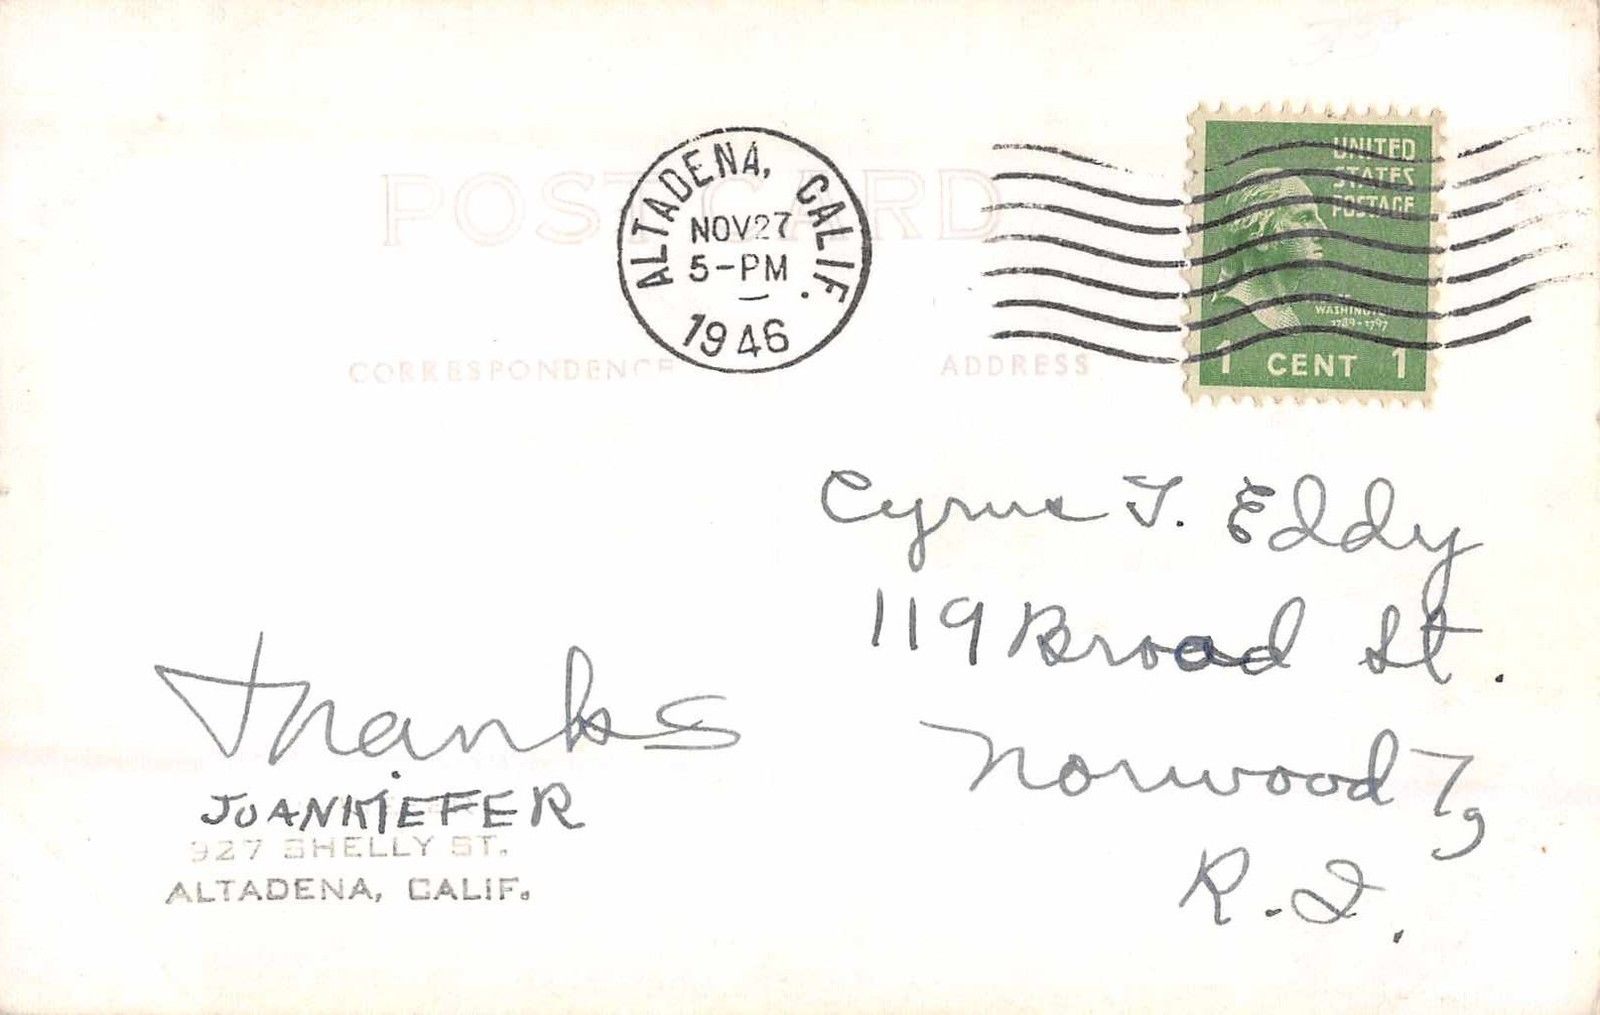 POST CARD
ALTADENA, CALIF.
NOV 27
5-PM
1946
UNITED
STATES
POSTAGE
WASHINGTON
1789-1797
1 CENT 1
CORRESPONDENCE
ADDRESS
Cyrus T. Eddy
119 Broad St.
Norwood 7,
R.I.
Thanks
JOAN KIEFER
927 SHELLY ST.
ALTADENA, CALIF.